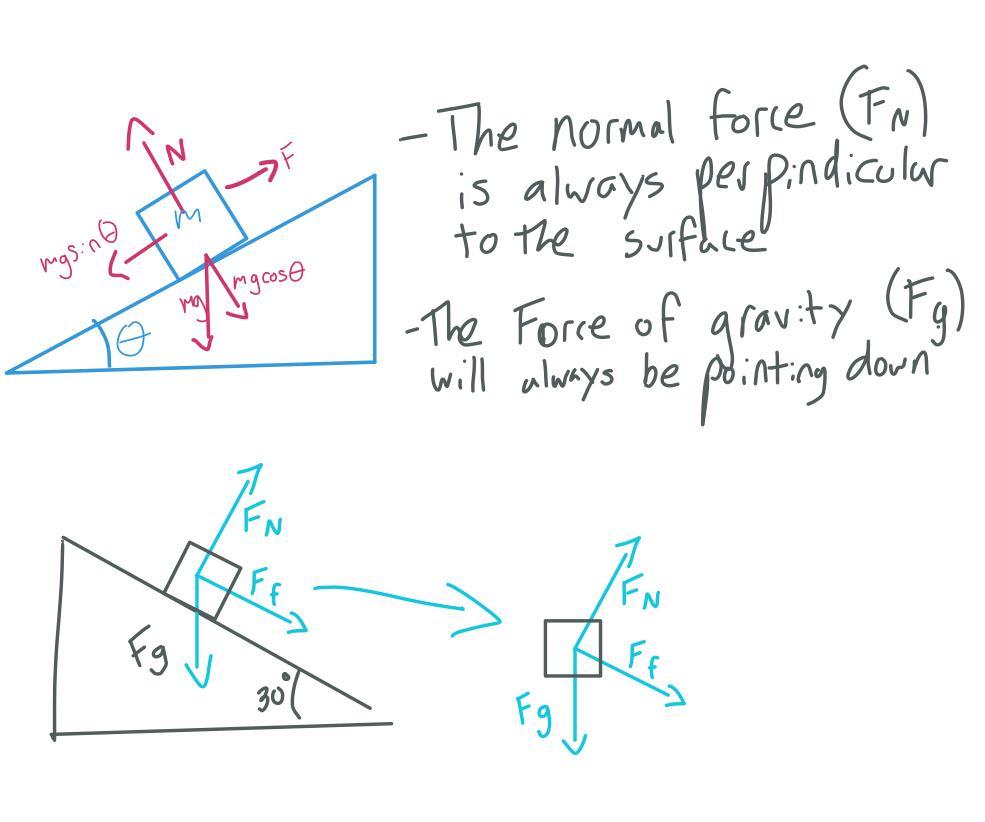 N
F
m
mgsinθ
mgcosθ
mg
θ
- The normal force (FN)
is always perpindicular
to the surface
- The Force of gravity (Fg)
will always be pointing down
FN
Ff
Fg
30°
FN
Ff
Fg